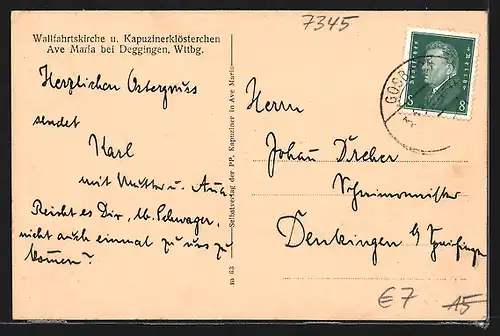 7345
Wallfahrtskirche u. Kapuzinerklösterchen
Ave Maria bei Deggingen, Wttbg.
Herzlichen Ostergruss
sendet
Karl
mit Mutter u.
Reicht es Dir, lb. Schwager,
nicht auch einmal zu uns zu
kommen?
m 63 Selbstverlag der PP. Kapuziner in Ave Maria
Deutsches Reich
8 8
GOSB
Herrn
Johann
Schreinermeister
Denkingen
€7 A5